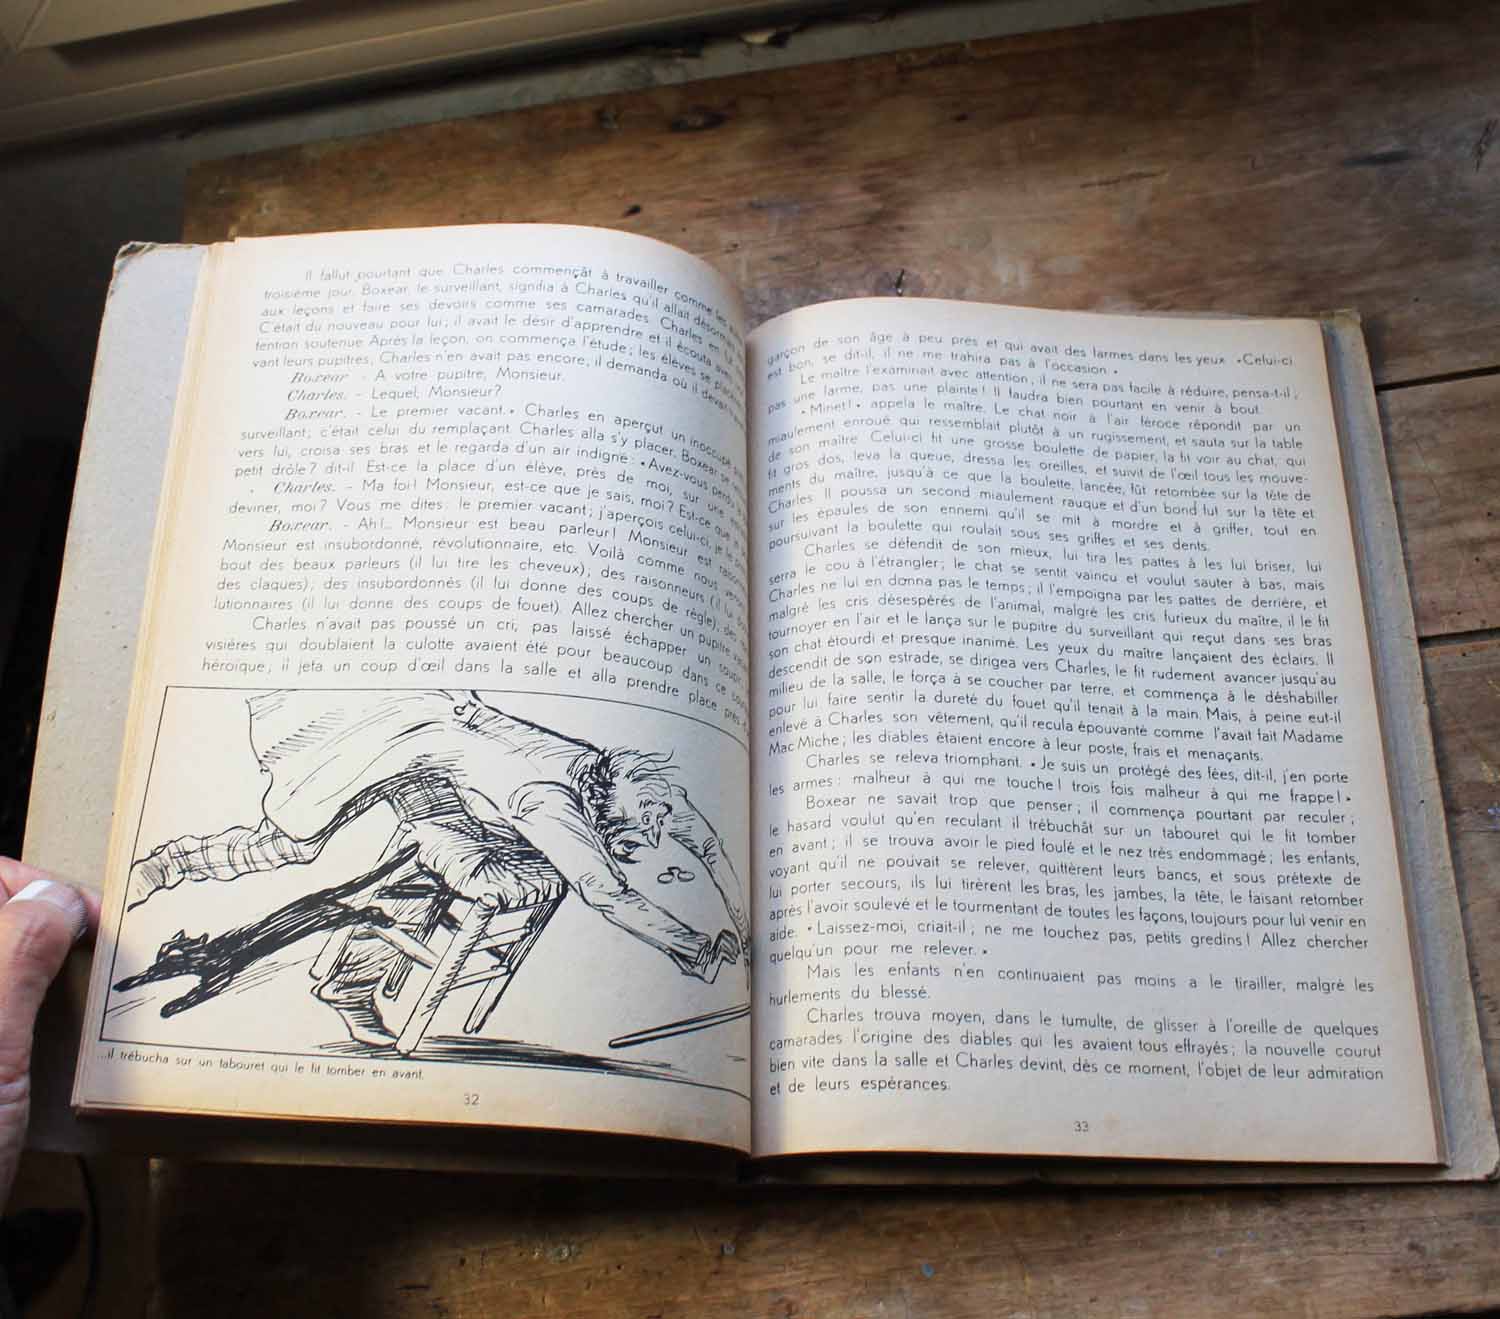 Il fallut pourtant que Charles commençât à travailler comme les
troisième jour, Boxear, le surveillant, signifia à Charles qu'il allait désorm
aux leçons et faire ses devoirs comme ses camarades. Charles en fut
C'était du nouveau pour lui; il avait le désir d'apprendre et il écouta avec
tention soutenue. Après la leçon, on commença l'étude; les élèves se placèrent
vant leurs pupitres, Charles n'en avait pas encore, il demanda où il devait
Boxear. - A votre pupitre, Monsieur.
Charles. - Lequel, Monsieur?
Boxear. - Le premier vacant.» Charles en aperçut un inoccupé
surveillant; c'était celui du remplaçant. Charles alla s'y placer. Boxear se
vers lui, croisa ses bras et le regarda d'un air indigné: «Avez-vous perdu
petit drôle? dit-il. Est-ce la place d'un élève, près de moi, sur une
Charles. - Ma foi! Monsieur, est-ce que je sais, moi? Est-ce que je
deviner, moi? Vous me dites: le premier vacant; j'aperçois celui-ci, je le
Boxear. - Ah!... Monsieur est beau parleur! Monsieur est
Monsieur est insubordonné, révolutionnaire, etc. Voilà comme nous
bout des beaux parleurs (il lui tire les cheveux), des raisonneurs (il lui
des claques); des insubordonnés (il lui donne des coups de règle); des
lutionnaires (il lui donne des coups de fouet). Allez chercher un pupitre
Charles n'avait pas poussé un cri, pas laissé échapper un soupir
visières qui doublaient la culotte avaient été pour beaucoup dans ce
héroïque; il jeta un coup d'œil dans la salle et alla prendre place près
...il trébucha sur un tabouret qui le fit tomber en avant.
32
garçon de son âge à peu près et qui avait des larmes dans les yeux. «Celui-ci
est bon, se dit-il, il ne me trahira pas à l'occasion.»
Le maître l'examinait avec attention; il ne sera pas facile à réduire, pensa-t-il;
pas une larme, pas une plainte! Il faudra bien pourtant en venir à bout.
«Minet!» appela le maître. Le chat noir à l'air féroce répondit par un
miaulement enroué qui ressemblait plutôt à un rugissement, et sauta sur la table
de son maître. Celui-ci fit une grosse boulette de papier, la fit voir au chat, qui
fit gros dos, leva la queue, dressa les oreilles, et suivit de l'œil tous les mouve-
ments du maître, jusqu'à ce que la boulette, lancée, fût retombée sur la tête de
Charles. Il poussa un second miaulement rauque et d'un bond fut sur la tête et
sur les épaules de son ennemi qu'il se mit à mordre et à griffer, tout en
poursuivant la boulette qui roulait sous ses griffes et ses dents.
Charles se défendit de son mieux, lui tira les pattes à les lui briser, lui
serra le cou à l'étrangler; le chat se sentit vaincu et voulut sauter à bas, mais
Charles ne lui en donna pas le temps; il l'empoigna par les pattes de derrière, et
malgré les cris désespérés de l'animal, malgré les cris furieux du maître, il le fit
tournoyer en l'air et le lança sur le pupitre du surveillant qui reçut dans ses bras
son chat étourdi et presque inanimé. Les yeux du maître lançaient des éclairs. Il
descendit de son estrade, se dirigea vers Charles, le fit rudement avancer jusqu'au
milieu de la salle, le força à se coucher par terre, et commença à le déshabiller
pour lui faire sentir la dureté du fouet qu'il tenait à la main. Mais, à peine eut-il
enlevé à Charles son vêtement, qu'il recula épouvanté comme l'avait fait Madame
Mac Miche; les diables étaient encore à leur poste, frais et menaçants.
Charles se releva triomphant. «Je suis un protégé des fées, dit-il, j'en porte
les armes: malheur à qui me touche! trois fois malheur à qui me frappe!»
Boxear ne savait trop que penser; il commença pourtant par reculer;
le hasard voulut qu'en reculant il trébuchât sur un tabouret qui le fit tomber
en avant; il se trouva avoir le pied foulé et le nez très endommagé; les enfants,
voyant qu'il ne pouvait se relever, quittèrent leurs bancs, et sous prétexte de
lui porter secours, ils lui tirèrent les bras, les jambes, la tête, le faisant retomber
après l'avoir soulevé et le tourmentant de toutes les façons, toujours pour lui venir en
aide. «Laissez-moi, criait-il; ne me touchez pas, petits gredins! Allez chercher
quelqu'un pour me relever.»
Mais les enfants n'en continuaient pas moins a le tirailler, malgré les
hurlements du blessé.
Charles trouva moyen, dans le tumulte, de glisser à l'oreille de quelques
camarades l'origine des diables qui les avaient tous effrayés; la nouvelle courut
bien vite dans la salle et Charles devint, dès ce moment, l'objet de leur admiration
et de leurs espérances.
33